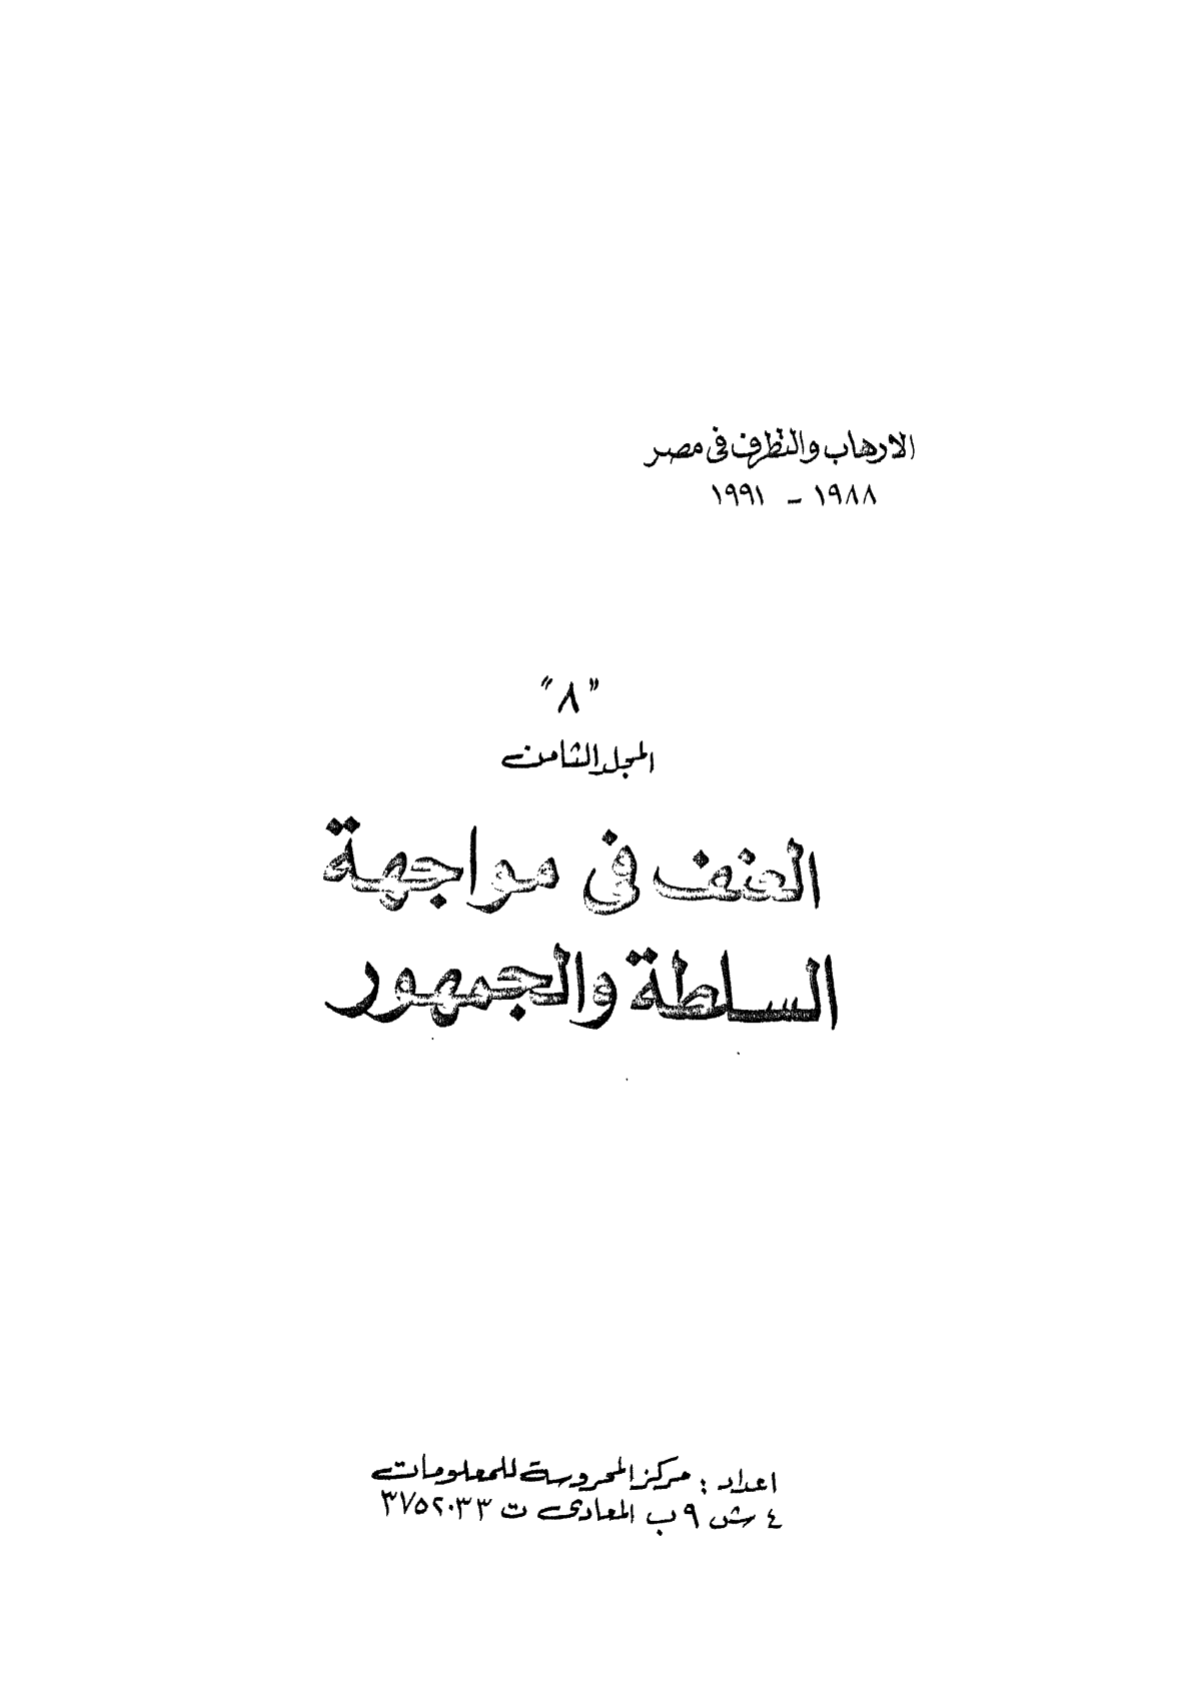 الارهاب والتطرف فى مصر
١٩٨٨ - ١٩٩١
"٨"
المجلد الثامن
العنف فى مواجهة
السلطة والجمهور
اعداد : مركز المحروسة للمعلومات
٤ ش ٩ب المعادى ت ٣٧٥٢٠٣٣